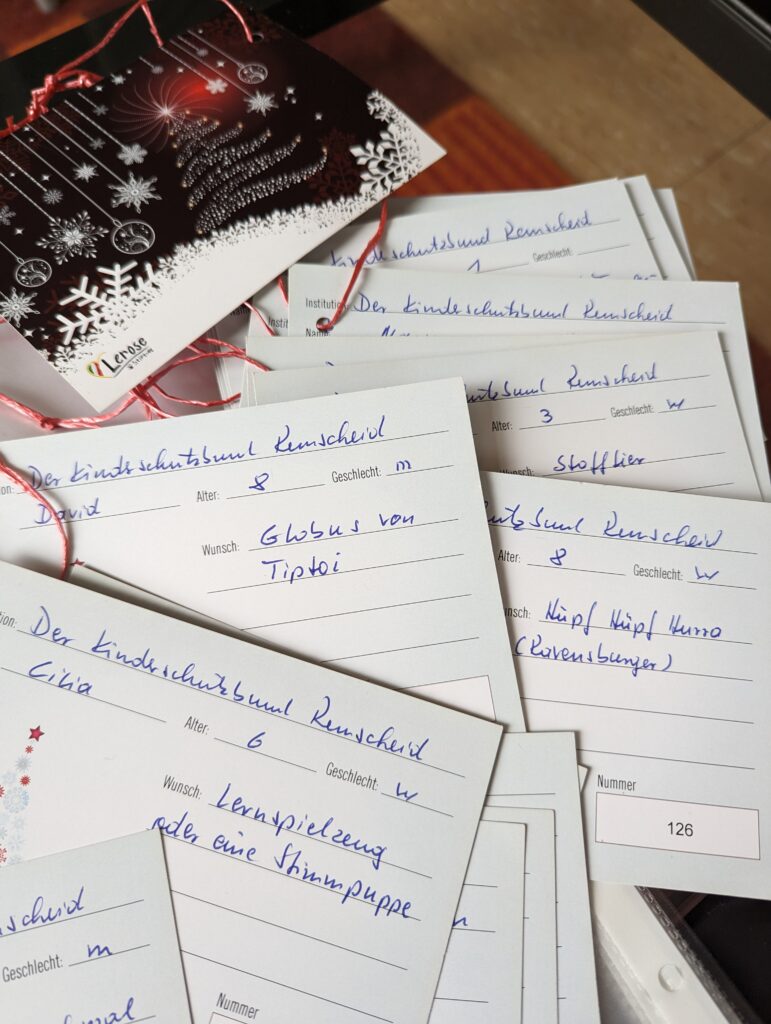 Lerose
Kinderschutzbund Remscheid
Geschlecht:
Institution: Der Kinderschutzbund Remscheid
Name
Remscheid
Alter: 3 Geschlecht: w
Wunsch: Stofftier
Der Kinderschutzbund Remscheid
David Alter: 8 Geschlecht: m
Wunsch: Globus von
Tiptoi
Remscheid
Alter: 8 Geschlecht: w
Hüpf Hüpf Hurra
(Ravensburger)
Nummer
126
Der Kinderschutzbund Remscheid
Cilia Alter: 6 Geschlecht: w
Wunsch: Lernspielzeug
oder eine Stimmpuppe
Nummer
Geschlecht: m